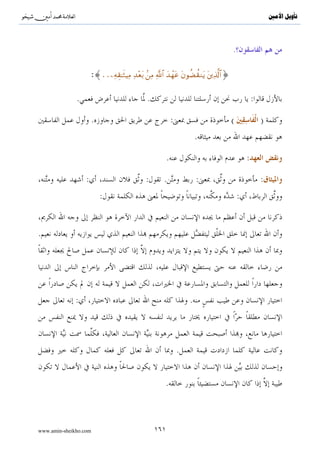 تأويل الأمين
العلامة محمد أمين شيخو
من هم الفاسقون؟.
﴿ ٱلَّذِينَ يَنقُضُونَ عَهْدَ ٱللَّهِ مِنۢ بَعْدِ مِيثَـٰقِهِۦ... ﴾:
بالأزل قالوا: يا رب نحن إن أرسلتنا للدنيا لن نتركك. لمَّا جاء للدنيا أعرض فعمي.
وكلمة ﴿ ٱلْفَـٰسِقِينَ ﴾ مأخوذة من فسق بمعنى: خرج عن طريق الحق وجاوزه. وأول عمل الفاسقين
هو نقضهم عهد الله من بعد ميثاقه.
ونقض العهد: هو عدم الوفاء به والنكول عنه.
والميثاق: مأخوذة من وثَّق، بمعنى: ربط ومتَّن. تقول: وثَّق فلان السند، أي: أشهد عليه ومتَّنه،
ووثَّق الرباط، أي: شدَّه ومكَّنه، وتبياناً وتوضيحاً لمعنى هذه الكلمة نقول:
ذكرنا من قبل أن أعظم ما يجده الإنسان من النعيم في الدار الآخرة هو النظر إلى وجه الله الكريم،
وأن الله تعالى إنَّما خلق الخلْق ليتفضَّل عليهم ويكرمهم بهذا النعيم الذي ليس يوازيه أو يعادله نعيم.
وبما أن هذا النعيم لا يكون ولا يتم ولا يتزايد ويدوم إلاَّ إذا كان للإنسان عمل صالح يجعله واثقاً
من رضاء خالقه عنه حتى يستطيع الإقبال عليه، لذلك اقتضى الأمر بإخراج الناس إلى الدنيا
وجعلها داراً للعمل والتسابق والمسارعة في الخيرات، لكن العمل لا قيمة له إن لم يكن صادراً عن
اختيار الإنسان وعن طيب نفسٍ منه. ولهذا كله منح الله تعالى عباده الاختيار، أي: إنه تعالى جعل
الإنسان مطلقاً حرّاً في اختياره يختار ما يريد لنفسه لا يقيده في ذلك قيد ولا يمنع النفس من
اختيارها مانع، وبهذا أصبحت قيمة العمل مرهونة بنيَّة الإنسان العالية، فكلَّما سمت نيَّة الإنسان
وكانت عالية كلما ازدادت قيمة العمل. وبما أن الله تعالى كل فعله كمال وكله خير وفضل
وإحسان لذلك بيَّن لهذا الإنسان أن هذا الاختيار لا يكون صالحاً وهذه النية في الأعمال لا تكون
طيبة إلاَّ إذا كان الإنسان مستضيئاً بنور خالقه.
www.amin-sheikho.com
١٦١